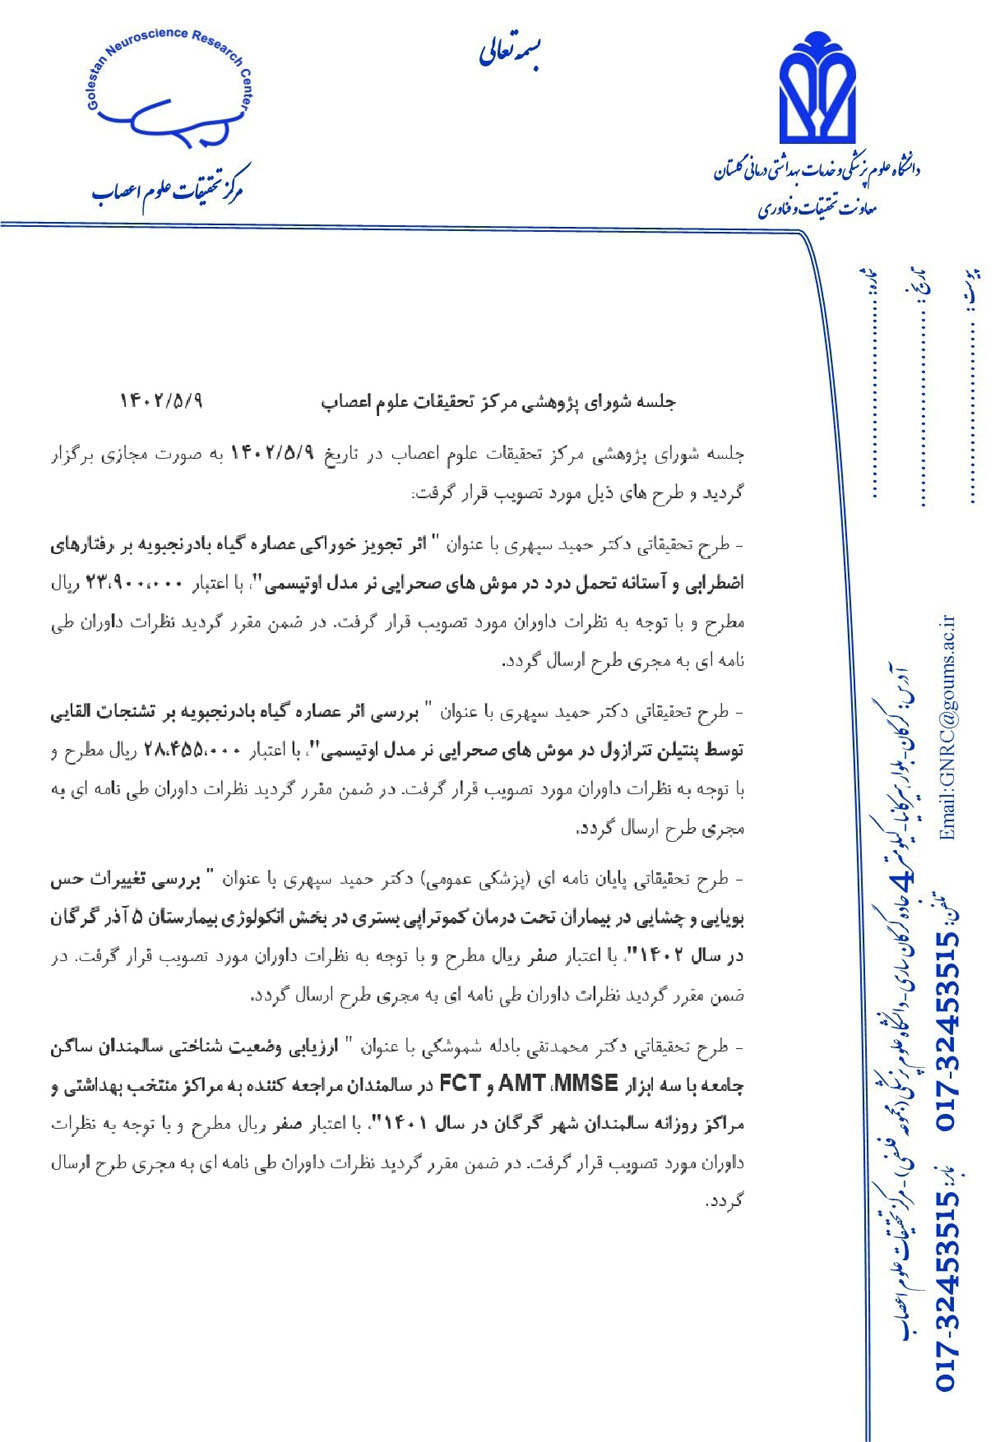 بسمه تعالی
Golestan Neuroscience Research Center
مرکز تحقیقات علوم اعصاب
دانشگاه علوم پزشکی و خدمات بهداشتی درمانی گلستان
معاونت تحقیقات و فناوری
شماره: ............................
تاریخ: ............................
پیوست: ............................
جلسه شورای پژوهشی مرکز تحقیقات علوم اعصاب ۱۴۰۲/۵/۹
جلسه شورای پژوهشی مرکز تحقیقات علوم اعصاب در تاریخ ۱۴۰۲/۵/۹ به صورت مجازی برگزار
گردید و طرح های ذیل مورد تصویب قرار گرفت:
- طرح تحقیقاتی دکتر حمید سپهری با عنوان " اثر تجویز خوراکی عصاره گیاه بادرنجبویه بر رفتارهای
اضطرابی و آستانه تحمل درد در موش های صحرایی نر مدل اوتیسمی"، با اعتبار ۲۳،۹۰۰،۰۰۰ ریال
مطرح و با توجه به نظرات داوران مورد تصویب قرار گرفت. در ضمن مقرر گردید نظرات داوران طی
نامه ای به مجری طرح ارسال گردد.
- طرح تحقیقاتی دکتر حمید سپهری با عنوان " بررسی اثر عصاره گیاه بادرنجبویه بر تشنجات القایی
توسط پنتیلن تترازول در موش های صحرایی نر مدل اوتیسمی"، با اعتبار ۲۸،۴۵۵،۰۰۰ ریال مطرح و
با توجه به نظرات داوران مورد تصویب قرار گرفت. در ضمن مقرر گردید نظرات داوران طی نامه ای به
مجری طرح ارسال گردد.
- طرح تحقیقاتی پایان نامه ای (پزشکی عمومی) دکتر حمید سپهری با عنوان " بررسی تغییرات حس
بویایی و چشایی در بیماران تحت درمان کموتراپی بستری در بخش انکولوژی بیمارستان ۵ آذر گرگان
در سال ۱۴۰۲"، با اعتبار صفر ریال مطرح و با توجه به نظرات داوران مورد تصویب قرار گرفت. در
ضمن مقرر گردید نظرات داوران طی نامه ای به مجری طرح ارسال گردد.
- طرح تحقیقاتی دکتر محمدتقی بادله شموشکی با عنوان " ارزیابی وضعیت شناختی سالمندان ساکن
جامعه با سه ابزار AMT ،MMSE و FCT در سالمندان مراجعه کننده به مراکز منتخب بهداشتی و
مراکز روزانه سالمندان شهر گرگان در سال ۱۴۰۱"، با اعتبار صفر ریال مطرح و با توجه به نظرات
داوران مورد تصویب قرار گرفت. در ضمن مقرر گردید نظرات داوران طی نامه ای به مجری طرح ارسال
گردد.
آدرس: گرگان-بلوار هیرکانیا-کیلومتر 4 جاده گرگان ساری-دانشگاه علوم پزشکی (مجموعه فلسفی)-مرکز تحقیقات علوم اعصاب
Email:GNRC@goums.ac.ir
تلفن: 017-32453515
نمابر: 017-32453515